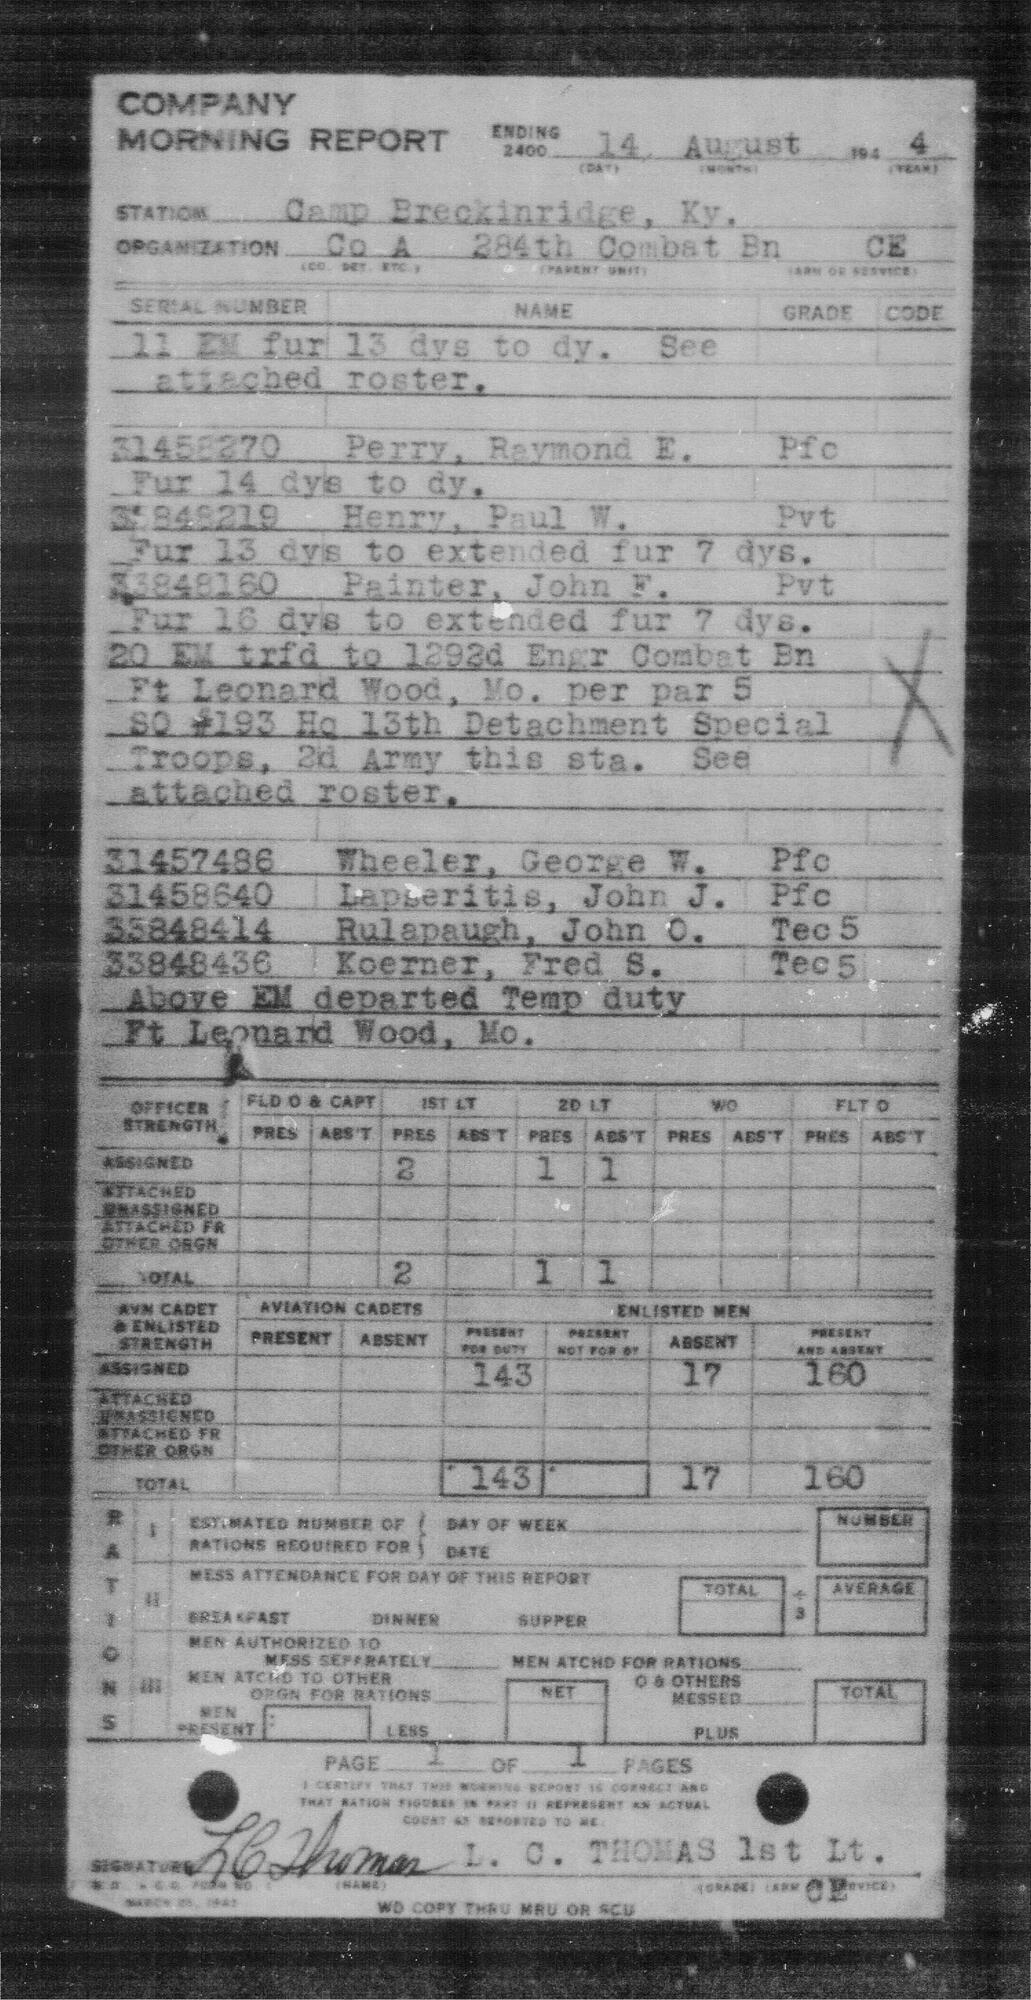 COMPANY
MORNING REPORT ENDING 2400 14 August 194 4
(DAY) (MONTH) (YEAR)
STATION Camp Breckinridge, Ky.
ORGANIZATION Co A 284th Combat Bn CE
(CO. DET. ETC.) (PARENT UNIT) (ARM OR SERVICE)
SERIAL NUMBER NAME GRADE CODE
11 EM fur 13 dys to dy. See
attached roster.
31458270 Perry, Raymond E. Pfc
Fur 14 dys to dy.
848219 Henry, Paul W. Pvt
Fur 13 dys to extended fur 7 dys.
33848160 Painter, John F. Pvt
Fur 16 dys to extended fur 7 dys.
20 EM trfd to 1292d Engr Combat Bn
Ft Leonard Wood, Mo. per par 5
SO #193 Hq 13th Detachment Special
Troops, 2d Army this sta. See
attached roster.
31457486 Wheeler, George W. Pfc
31458640 Lapseritis, John J. Pfc
33848414 Rulapaugh, John O. Tec 5
33848436 Koerner, Fred S. Tec 5
Above EM departed Temp duty
Ft Leonard Wood, Mo.
OFFICER STRENGTH FLD O & CAPT 1ST LT 2D LT WO FLT O
PRES ABS'T PRES ABS'T PRES ABS'T PRES ABS'T PRES ABS'T
ASSIGNED 2 1 1
ATTACHED
UNASSIGNED
ATTACHED FR
OTHER ORGN
TOTAL 2 1 1
AVN CADET & ENLISTED STRENGTH AVIATION CADETS ENLISTED MEN
PRESENT ABSENT PRESENT FOR DUTY PRESENT NOT FOR DY ABSENT PRESENT AND ABSENT
ASSIGNED 143 17 160
ATTACHED
UNASSIGNED
ATTACHED FR
OTHER ORGN
TOTAL 143 17 160
RATIONS
I ESTIMATED NUMBER OF RATIONS REQUIRED FOR DAY OF WEEK NUMBER
DATE
II MESS ATTENDANCE FOR DAY OF THIS REPORT TOTAL ÷ 3 AVERAGE
BREAKFAST DINNER SUPPER
III MEN AUTHORIZED TO
MESS SEPARATELY MEN ATCHD FOR RATIONS
MEN ATCHD TO OTHER
ORGN FOR RATIONS NET O & OTHERS MESSED TOTAL
MEN PRESENT LESS PLUS
PAGE 1 OF 1 PAGES
I CERTIFY THAT THIS MORNING REPORT IS CORRECT AND
THAT RATION FIGURES IN PART II REPRESENT AN ACTUAL
COUNT AS REPORTED TO ME.
SIGNATURE L C Thomas L. C. THOMAS 1st Lt.
(NAME) (GRADE) (ARM CE SERVICE)
WD COPY THRU MRU OR SCU